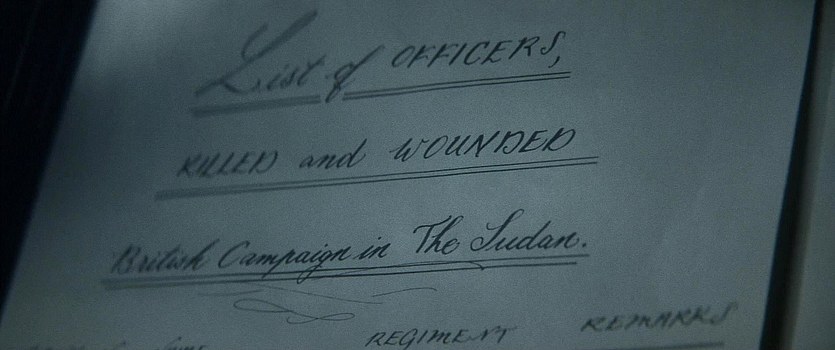 List of OFFICERS,
KILLED and WOUNDED
British Campaign in The Sudan.
REGIMENT REMARKS